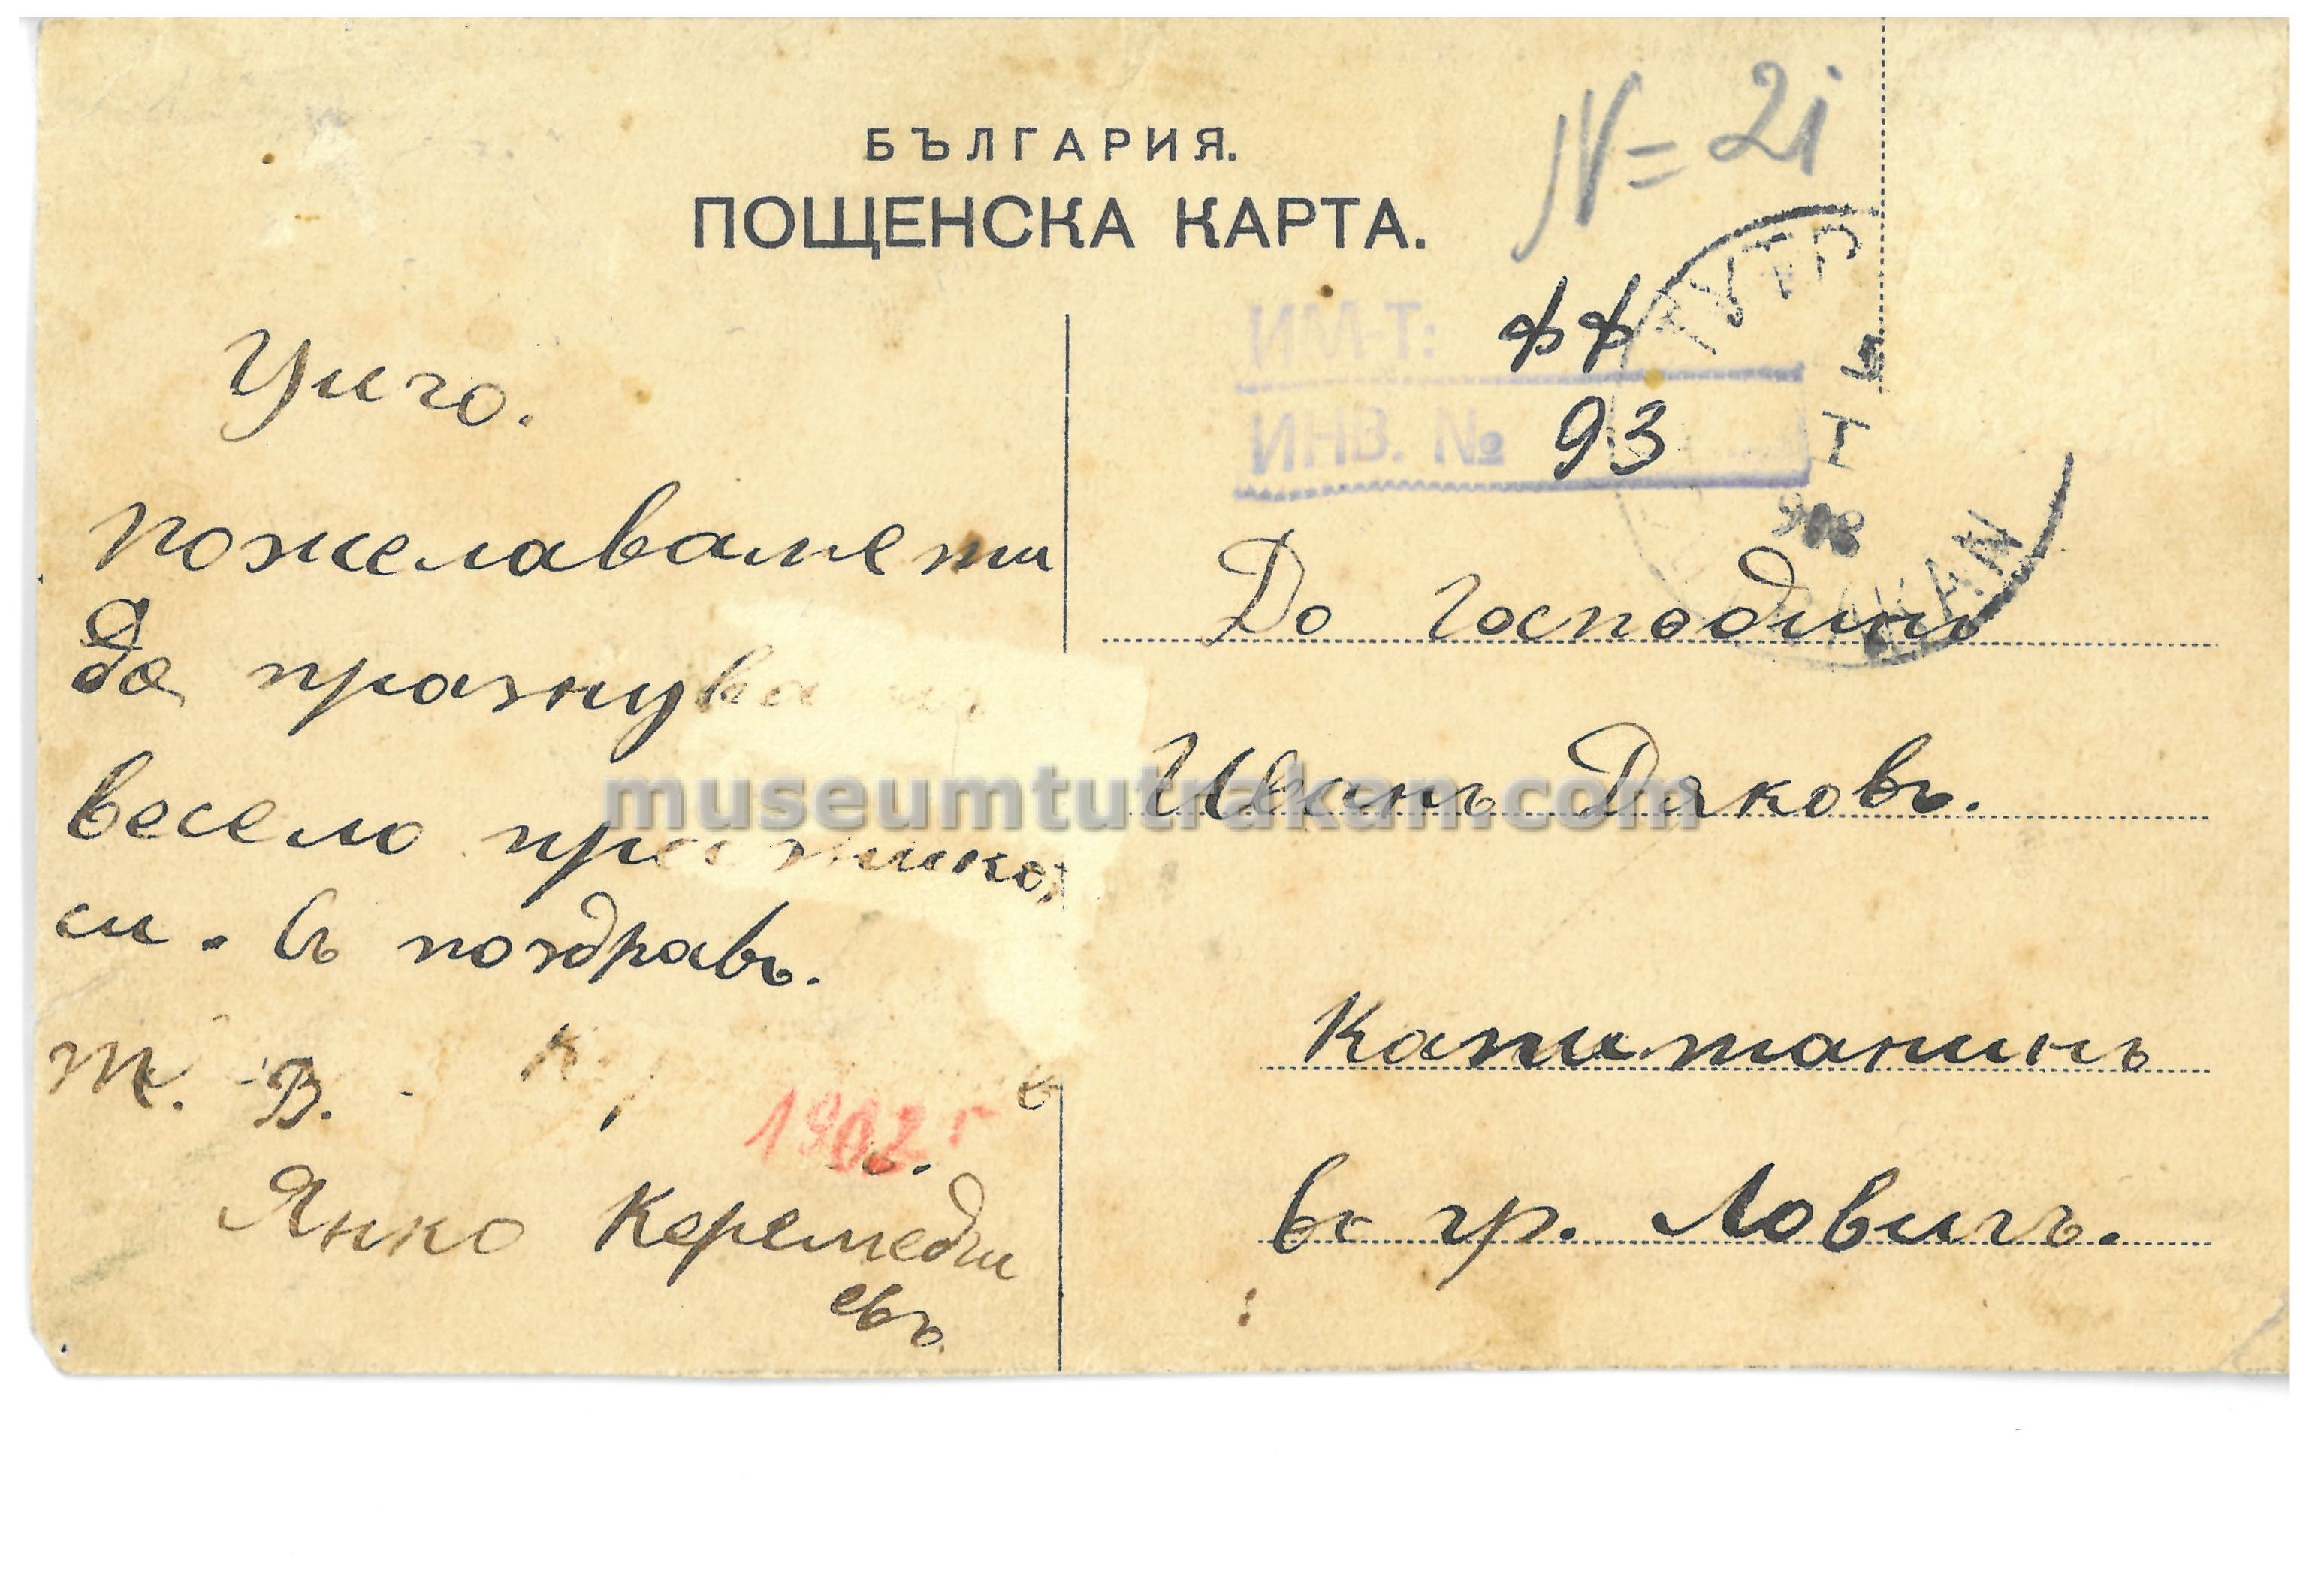 БЪЛГАРИЯ.
ПОЩЕНСКА КАРТА.
N=21
ИМ-Т: ФФ
ИНВ. № 93
Уичо.
пожелаваме ти
Да празнува
весело празника
си. Съ поздравъ.
Т. В. К
1902 г
Янко Керемедчи
евъ.
До Господинъ
Иванъ Дяковъ.
Капитанинъ
въ гр. Ловичъ.
museumtutrakan.com